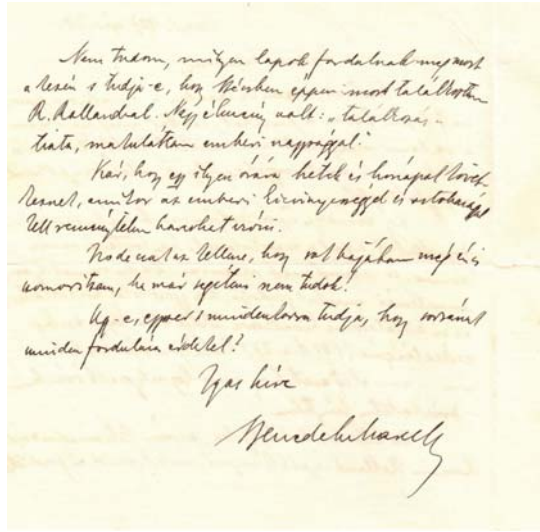 Nem tudom, milyen lapok fordulnak meg most
a kezén s tudja-e, hogy Bécsben éppen most találkoztam
R. Rollanddal. Nagy élmény volt: „találkozás
emberi nagysággal."
Kár, hogy egy ilyen órára hetek és hónapok követ-
keznek, amikor az emberi kicsinyességgel és ostobasággal
kell reménytelen harcokat vívni.
No de csak az kellene, hogy sok bajában még én is
szomorítsam, ha már segíteni nem tudok!
Ugy-e, egyszer s mindenkorra tudja, hogy sorsának
minden fordulása érdekel?
Igaz híve